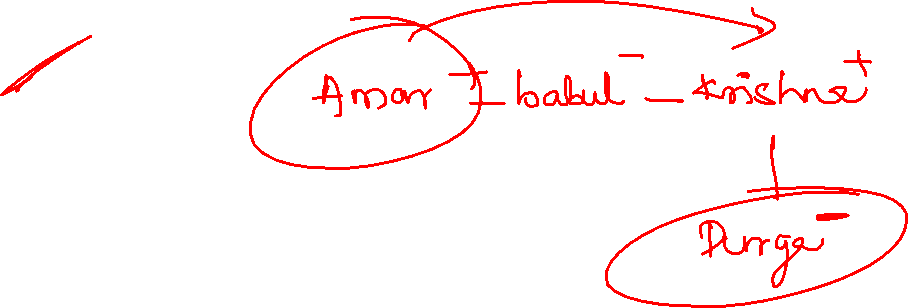 Amar+ - babul- - Krishna+
Durga-